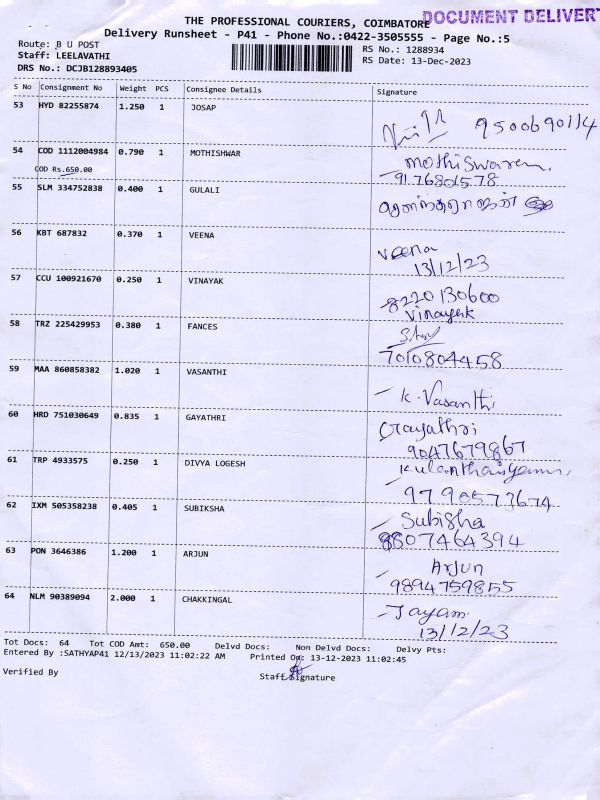 THE PROFESSIONAL COURIERS, COIMBATORE DOCUMENT DELIVERY
Delivery Runsheet - P41 - Phone No.:0422-3505555 - Page No.:5
Route: B U POST RS No.: 1288934
Staff: LEELAVATHI RS Date: 13-Dec-2023
DRS No.: DCJB128893405
S No Consignment No Weight PCS Consignee Details Signature
53 HYD 82255874 1.250 1 JOSAP
9500690114
54 COD 1112004984 0.790 1 MOTHISHWAR mothiswaren.
COD Rs.650.00 9176801578
55 SLM 334752838 0.400 1 GULALI
56 KBT 687832 0.370 1 VEENA veena
13/12/23
57 CCU 100921670 0.250 1 VINAYAK 8220130600
Vinayak
58 TRZ 225429953 0.380 1 FANCES
7010804458
59 MAA 860858382 1.020 1 VASANTHI K. Vasanthi
60 HRD 751030649 0.835 1 GAYATHRI Gayathri
9047679867
61 TRP 4933575 0.250 1 DIVYA LOGESH
9790573674
62 IXM 505358238 0.405 1 SUBIKSHA Subisha
8807464394
63 PON 3646386 1.200 1 ARJUN Arjun
9894759855
64 NLM 90389094 2.000 1 CHAKKINGAL Jayam
13/12/23
Tot Docs: 64 Tot COD Amt: 650.00 Delvd Docs: Non Delvd Docs: Delvy Pts:
Entered By :SATHYAP41 12/13/2023 11:02:22 AM Printed On: 13-12-2023 11:02:45
Verified By Staff Signature